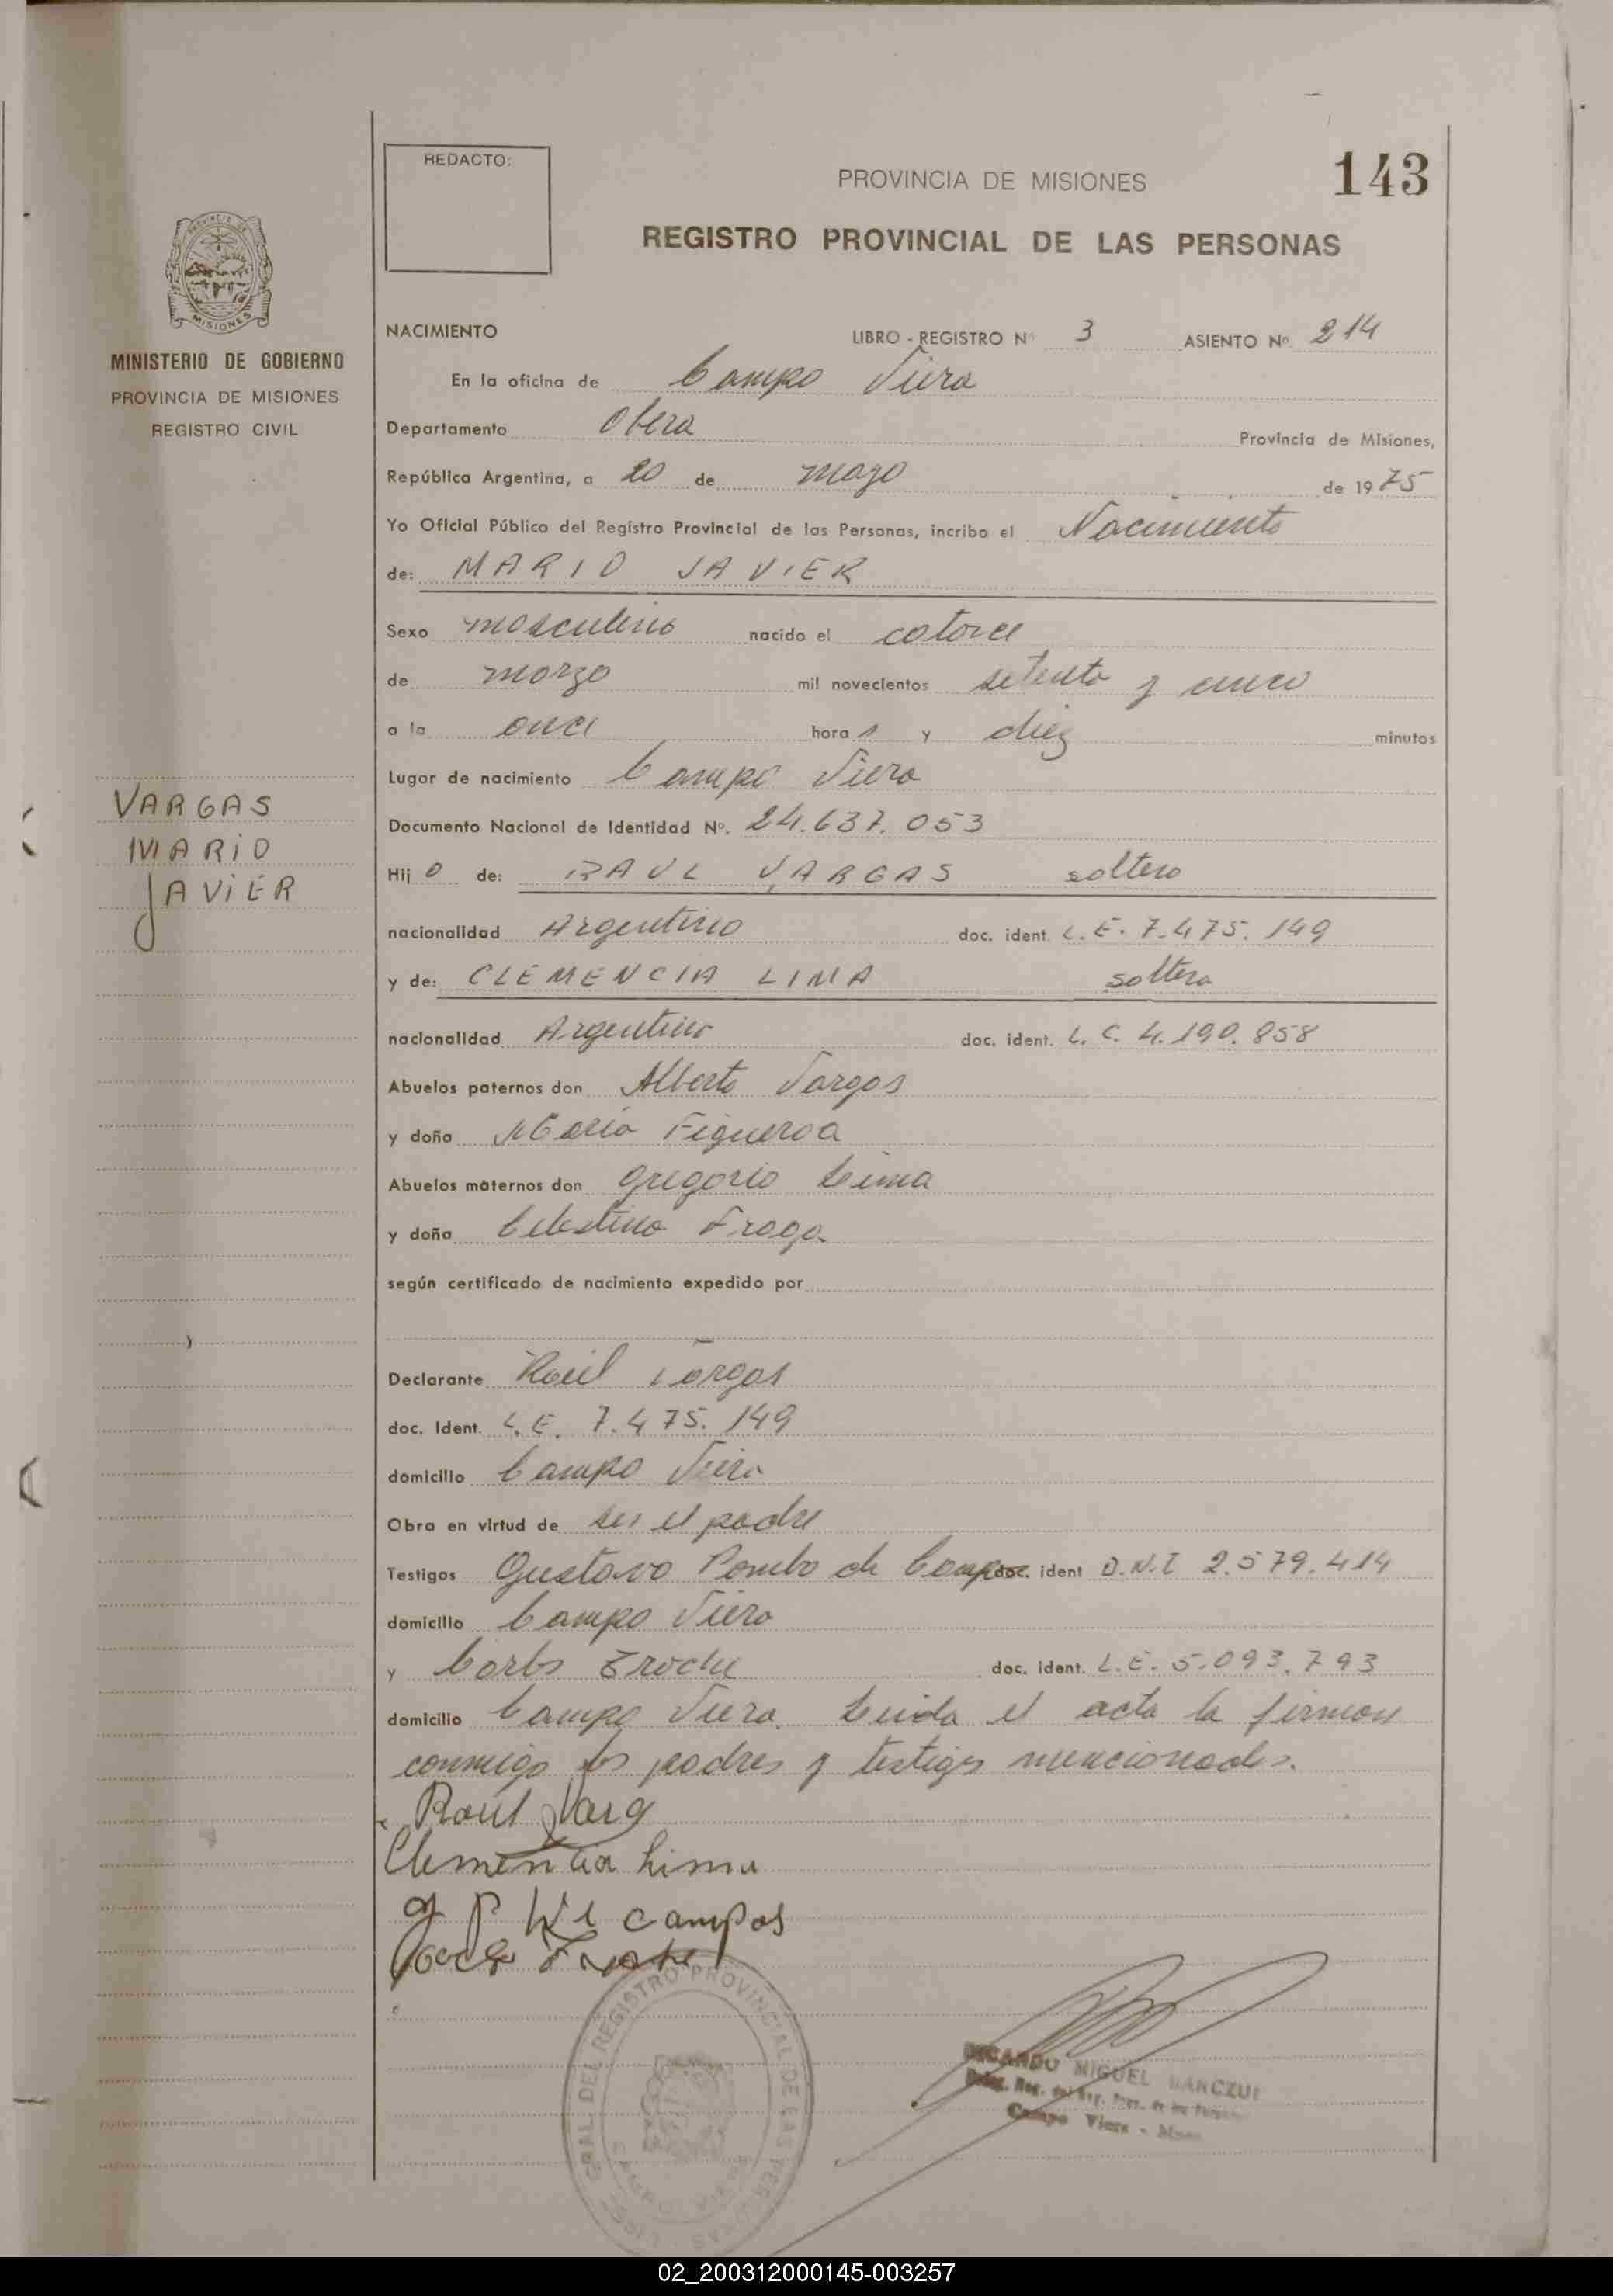 REDACTO:
PROVINCIA DE MISIONES
143
REGISTRO PROVINCIAL DE LAS PERSONAS
PROVINCIA DE
MISIONES
MINISTERIO DE GOBIERNO
PROVINCIA DE MISIONES
REGISTRO CIVIL
VARGAS
MARIO
JAVIER
NACIMIENTO LIBRO - REGISTRO Nº 3 ASIENTO Nº 214
En la oficina de Campo Viera
Departamento Obera Provincia de Misiones,
República Argentina, a 20 de mayo de 1975
Yo Oficial Público del Registro Provincial de las Personas, incribo el Nacimiento
de: MARIO JAVIER
Sexo masculino nacido el catorce
de marzo mil novecientos setenta y cinco
a la once horas y diez minutos
Lugar de nacimiento Campo Viera
Documento Nacional de Identidad Nº. 24.637.053
Hijo de: RAUL VARGAS soltero
nacionalidad Argentino doc. ident. L.E. 7.475.149
y de: CLEMENCIA LIMA soltera
nacionalidad Argentina doc. ident. L.C. 4.190.858
Abuelos paternos don Alberto Vargas
y doña Maria Figueroa
Abuelos maternos don Gregorio Lima
y doña Celestina Fraga
según certificado de nacimiento expedido por
Declarante Raúl Vargas
doc. Ident. L.E. 7.475.149
domicilio Campo Viera
Obra en virtud de ser el padre
Testigos Gustavo Pombo de Campo doc. ident D.N.I 2.579.414
domicilio Campo Viera
y Carlos Troche doc. ident. L.E. 5.093.793
domicilio Campo Viera. Leida el acta la firman
conmigo los padres y testigos mencionados.
Raul Varg
Clemencia Lima
G P de campos
RICARDO MIGUEL
Campo Viera - Mnes
GRAL DEL REGISTRO PROVINCIAL DE LAS PERSONAS
CAMPO VIERA
02_200312000145-003257